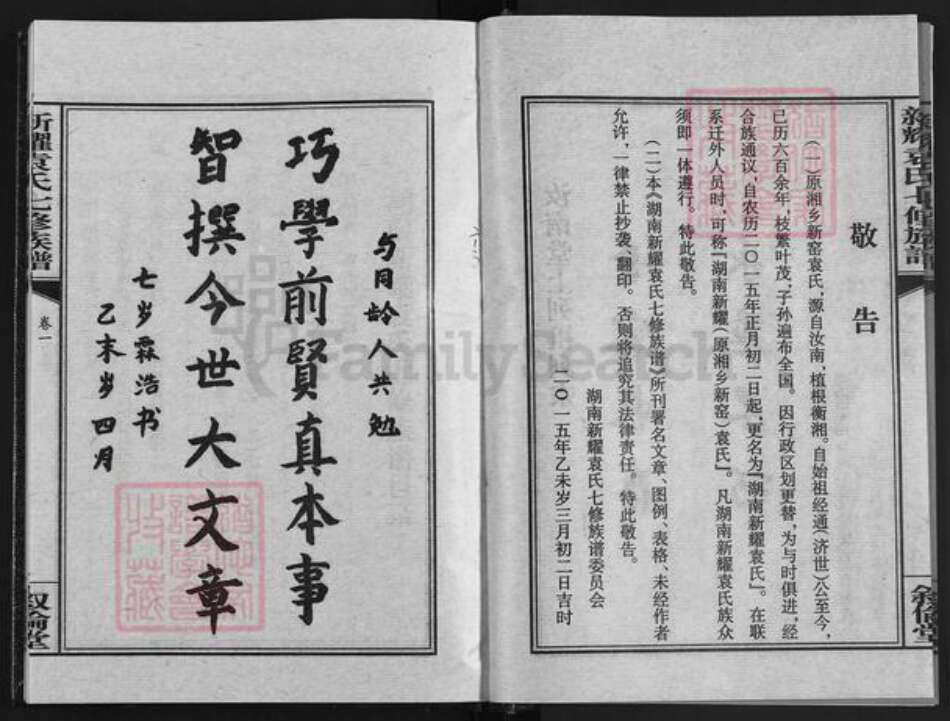 敬告
(一)原湘乡新窑袁氏,源自汝南,植根衡湘。自始祖经通(济世)公至今,
已历六百余年,枝繁叶茂,子孙遍布全国。因行政区划更替,为与时俱进,经
合族通议,自农历二〇一五年正月初二日起,更名为『湖南新耀袁氏』。在联
系迁外人员时,可称『湖南新耀(原湘乡新窑)袁氏』。凡湖南新耀袁氏族众
须即一体遵行。特此敬告。
(二)本《湖南新耀袁氏七修族谱》所刊署名文章、图例、表格、未经作者
允许,一律禁止抄袭、翻印。否则将追究其法律责任。特此敬告。
湖南新耀袁氏七修族谱委员会
二〇一五年乙未岁三月初二日吉时
与同龄人共勉
巧學前賢真本事
智撰今世大文章
七岁霖浩书
乙未岁四月
新耀袁氏七修族譜
卷一
叙倫堂
FamilySearch